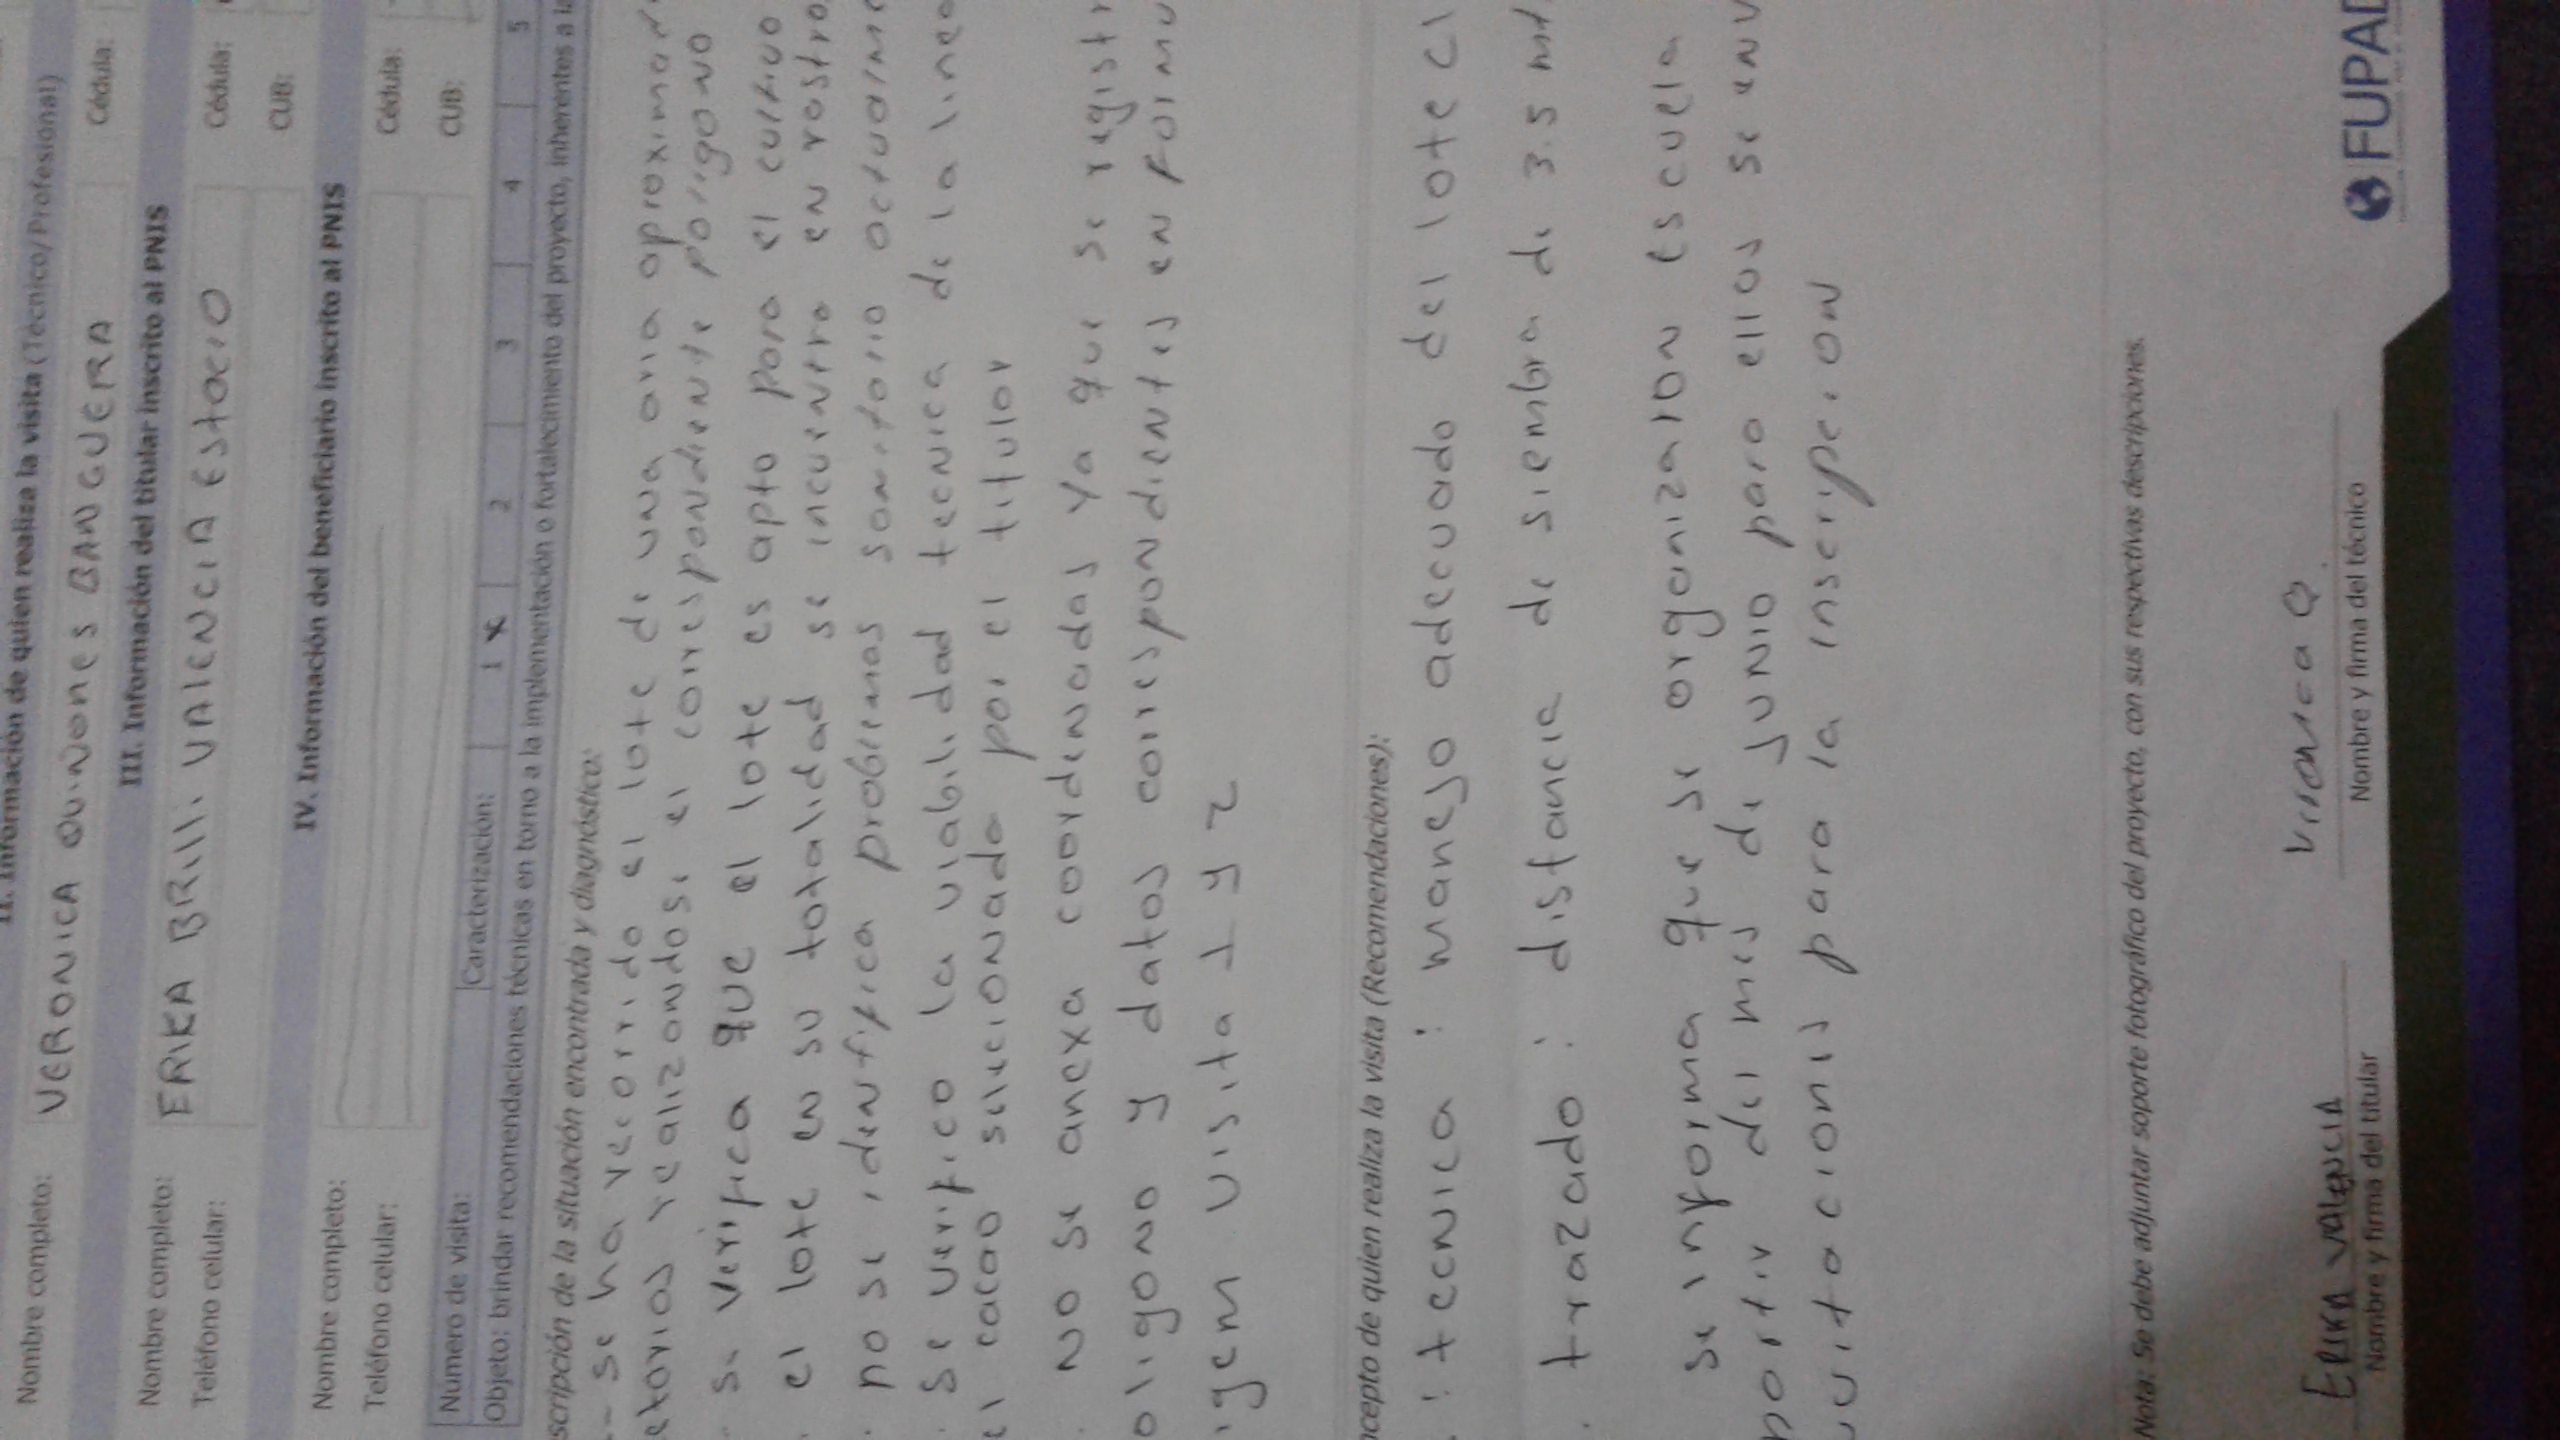 II. Información de quien realiza la visita (Técnico/Profesional)
Nombre completo: VERONICA QUIÑONES BANGUERA Cédula:
III. Información del titular inscrito al PNIS
Nombre completo: ERIKA BRILLI VALENCIA ESTACIO Cédula:
Teléfono celular: CUB:
IV. Información del beneficiario inscrito al PNIS
Nombre completo: Cédula:
Teléfono celular: CUB:
Número de visita: Caracterización: 1 X 2 3 4 5
Objeto: brindar recomendaciones técnicas en torno a la implementación o fortalecimiento del proyecto, inherentes a la
scripción de la situación encontrada y diagnóstico:
-- se ha recorrido el lote de una aria aproximar
realizandose el correspondiente poligono
. se verifica que el lote es apto para el cultivo
. el lote en su totalidad se incuentra en rostro
. no se identifica problemas sanitario actualme
. se verifico la viabilidad tecnica de la linea
el cacao selecionado por el titular
. no se anexa coordenadas ya que se registr
oligono y datos correspondientes en formu
igem visita 1 y 2
ncepto de quien realiza la visita (Recomendaciones):
. : tecnica : manejo adecuado del lote cl
. trazado : distancia de siembra de 3.5 mt
se informa que se organizaron escuela
partir del mes de junio para ellos se env
vitaciones para la inscripcion
Nota: Se debe adjuntar soporte fotográfico del proyecto, con sus respectivas descripciones.
ERIKA VALENCIA Veronica Q.
Nombre y firma del titular Nombre y firma del técnico
FUPAD